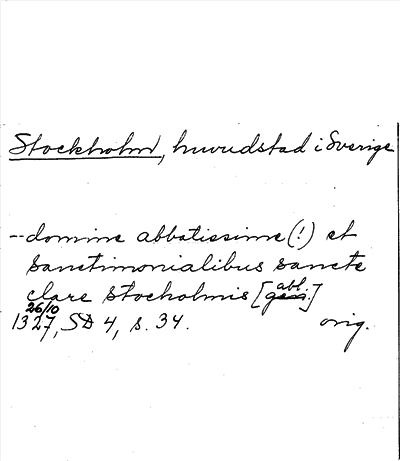 Stockholm, huvudstad i Sverige
--domine abbatissime (!) et
sanctimonialibus sancte
clare stocholmis [gen. abl.]
1327 26/10, SD 4, s. 34. orig.